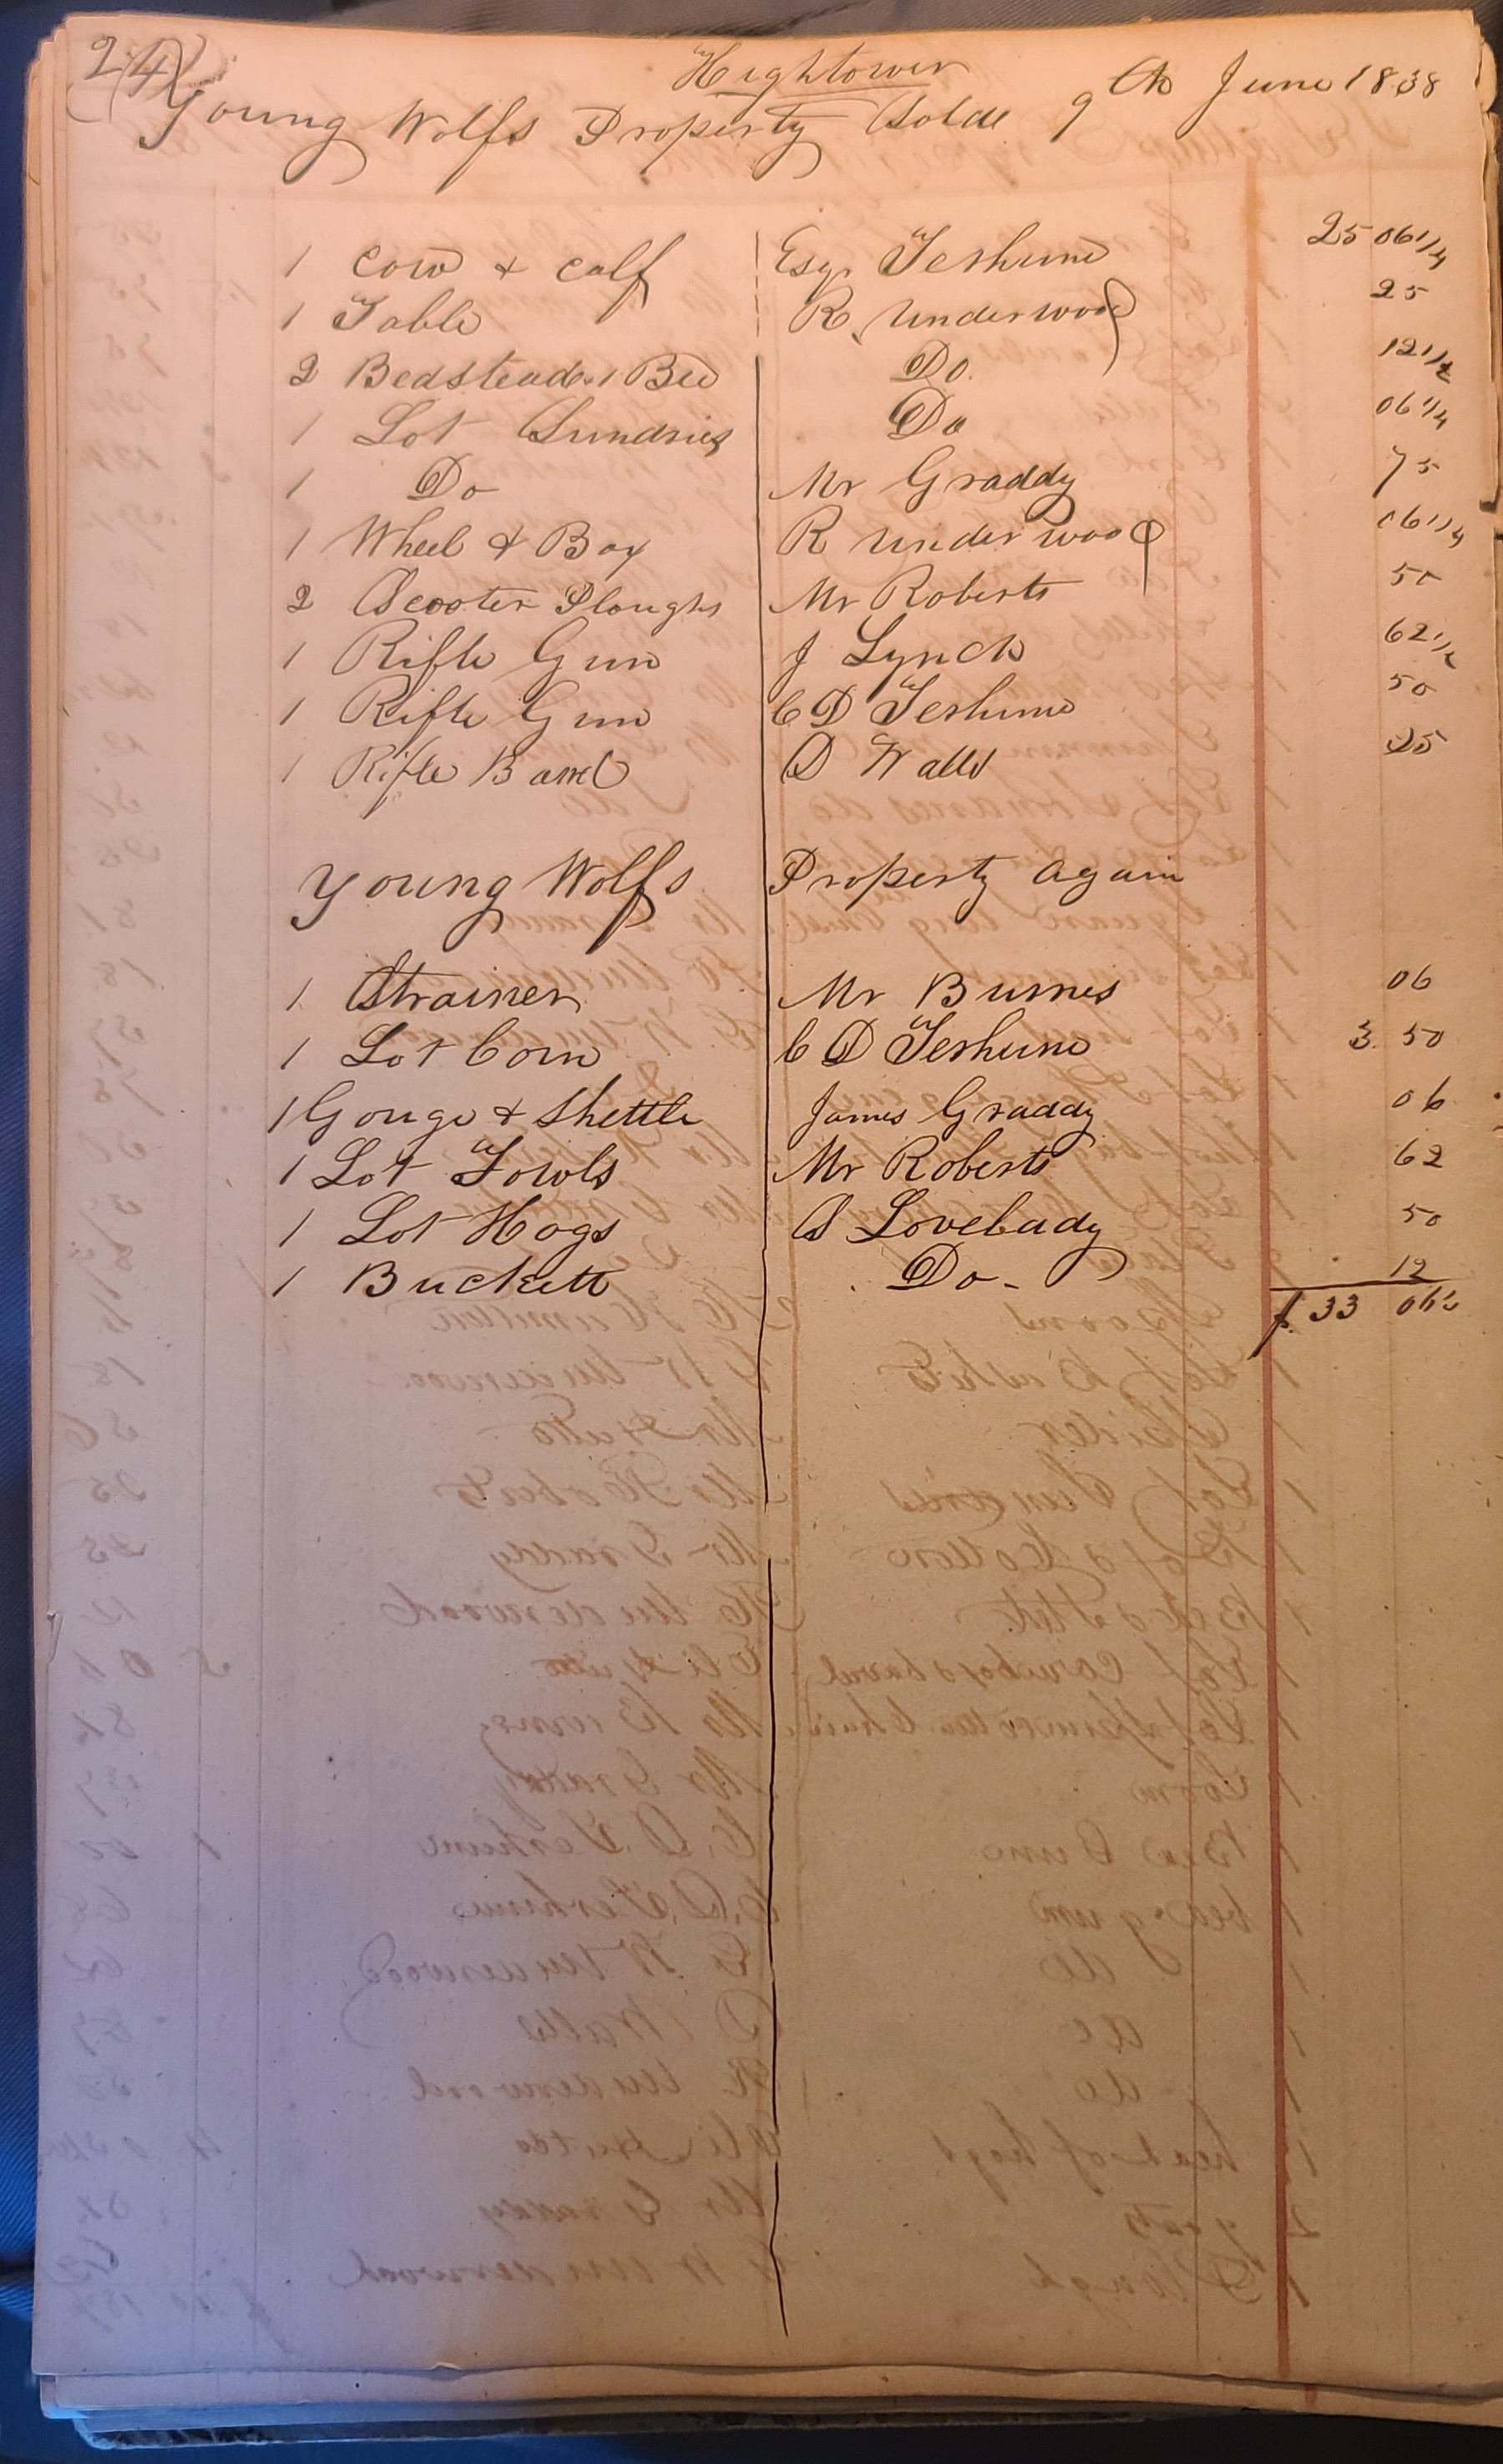 24
Hightower
Young Wolfs Property Solde 9th June 1838
1 Cow & Calf Esqr Terhune 25 06 1/4
1 Table R Underwood 25
2 Bedsteads 1 Bed Do. 12 1/2
1 Lot Sundries Do 06 1/4
1 Do Mr Graddy 75
1 Wheel & Box R Underwood 06 1/4
2 Scooter Ploughs Mr Roberts 50
1 Rifle Gun J Lynch 62 1/2
1 Rifle Gun C D Terhune 50
1 Rifle Barrel D Walls 25
Young Wolfs Property Again
1 Strainer Mr Burns 06
1 Lot Corn C D Terhune 3. 50
1 Gouge & Shettle James Graddy 06
1 Lot Fowls Mr Roberts 62
1 Lot Hogs S Lovelady 50
1 Buckett Do - 12
$ 33 06